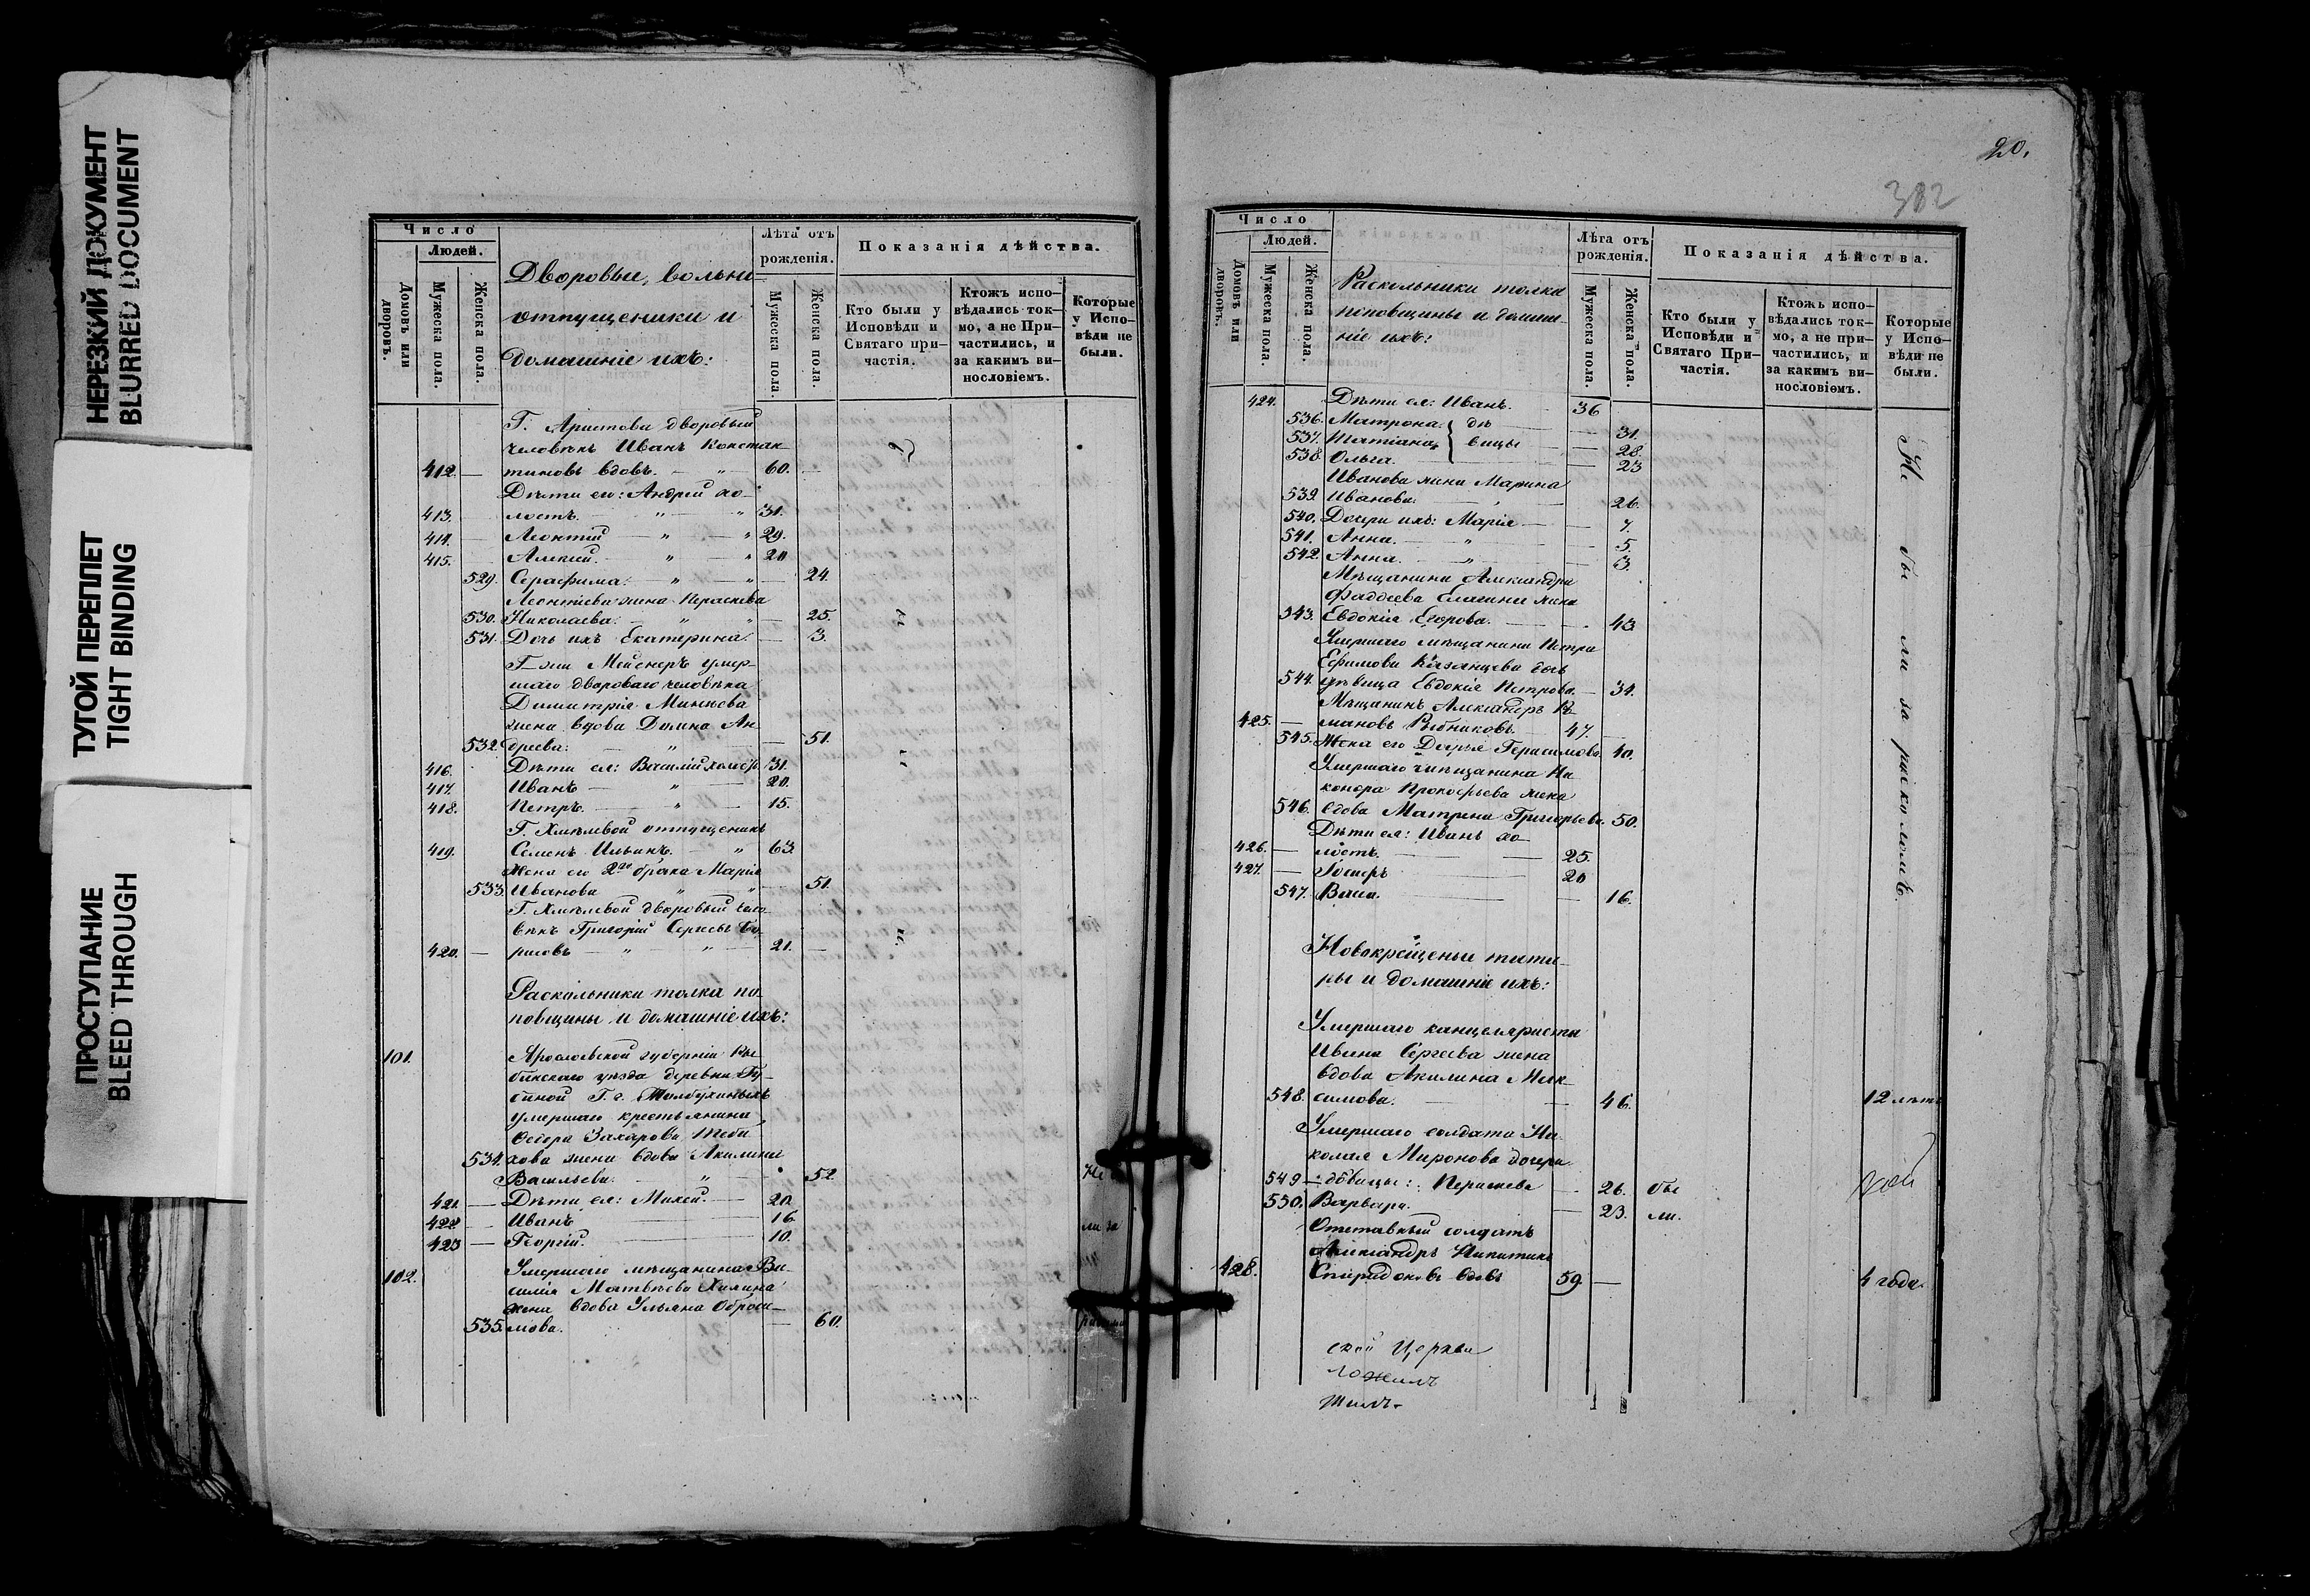 НЕРЕЗКИЙ ДОКУМЕНТ
BLURRED DOCUMENT
ТУГОЙ ПЕРЕПЛЕТ
TIGHT BINDING
ПРОСТУПАНИЕ
BLEED THROUGH
Число
Людей.
Домовъ или дворовъ.
Мужеска пола.
Женска пола.
Дворовыи, вольно
отпущеники и
домашніе ихъ:
Лѣта отъ рожденія.
Мужеска пола.
Женска пола.
Показанія дѣйства.
Кто были у Исповѣди и Святаго причастія.
Ктожъ исповѣдались токмо, а не Причастились, и за какимъ винословіемъ.
Которые у Исповѣди не были.
Г. Аристова дворовый
человѣкъ Иванъ Констан
412. — тиновъ вдовъ. — „ — 60.
Дѣти его: Андрей хо-
413. лостъ. — „ „ 31.
414. Леонтій — „ — „ 29.
415. Алексій. — „ „ 20
529. Серафима. „ — „ — 24.
Леонтіева жена Параскева
530. Николаева. „ „ — 25.
531. Дочь ихъ Екатерина. — 3.
Г-жи Мейснеръ умер-
шаго двороваго человѣка
Димитрія Минѣева
жена вдова Домна Ан
532. дреева: — „ — 51.
416. Дѣти ея: Василій холост. 31.
417. Иванъ — „ — 20.
418. Петръ. — „ — 15.
Г. Хмѣлевой отпущеникъ
419. Семенъ Ильинъ. — „ 63.
Жена его 2го брака Марія
533. Иванова „ „ 51.
Г. Хмѣлевой дворовый чело-
вѣкъ Григорій Сергѣевъ Бо
420. — рисовъ — „ „ 21. —
Раскольники толка по
повщины и домашніе ихъ:
101. Ярославской губерніи Ры
бинскаго уѣзда деревни
умершаго крестьянина
Захарова
534. хова жена вдова Акилина
Васильева. — „ — 52 Не
421. — Дѣти ея: Михей. — 20.
422 — Иванъ — 16
ли за
423 — Георгій. — 10.
102. Умершаго мѣщанина Ва
силія Матвѣева Халина
жена вдова Ульяна
535. мова. — 60.
20.
382
Число
Людей.
Домовъ или дворовъ.
Мужеска пола
Женска пола.
Раскольники толка
поповщины и домаш-
ніе ихъ:
Лѣта отъ рожденія.
Мужеска пола.
Женска пола.
Показанія дѣйства.
Кто были у Исповѣди и Святаго Причастія.
Ктожъ исповѣдались токмо, а не причастились, и за какимъ винословіемъ.
Которые у Исповѣди не были.
424. Дѣти ея: Иванъ. — 36
536. Матрона. дѣ — 31.
537. Татіана вицы — 28.
538. Ольга. — 23
Иванова жена Марина
539. Иванова. — 26.
540. Дочери ихъ: Марія — 7.
541. Анна. — „ — 5.
542. Анна. — „ — 3.
Мѣщанина Александра
Фаддеева Елагина жена
543. Евдокія Егорова. — 43.
Умершаго мѣщанина Петра
Ефимова Казанцева дочь
544. дѣвица Евдокія Петрова. — 34.
Мѣщанинъ Александръ Ро
425. — мановъ Рыбниковъ — 47. —
545. Жена его Дарья Герасимова 40.
Умершаго мѣщанина Ни
канора Прокофьева жена
546. вдова Матрена Григорьева. 50.
Дѣти ея: Иванъ хо-
426. — лостъ. — 25.
427. — Петръ — 20
547. Васса. — 16.
Не бы ли за расколомъ.
Новокрещеные тата-
ры и домашніе ихъ:
Умершаго канцеляриста
Ивана Сергеева жена
вдова Акилина Мак-
548. симова. — 46. 12 лѣтъ
Умершаго солдата Ни
колая Миронова дочери
549 — дѣвицы: Параскева — 26. бы
550. Варвара. — 23. ли.
Отставный солдатъ
Александръ Никитинъ
428. Спиридоновъ вдовъ 59. — 4 года.
ской Церкви